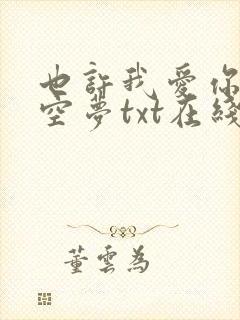 也許我愛你
空夢txt在綫
董雲為